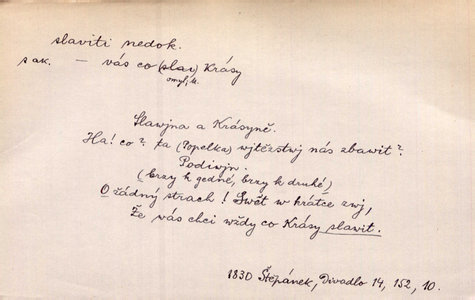 slaviti nedok.
s ak. – vás co (slav) Krásy
omyl. k.
Slawjna a Krásyně.
Ha! co? ta (Popelka) wjtězstwj nás zbawit?
Podiwjn.
(brzy k gedné, brzy k druhé)
O žádný strach! Swět w krátce zwj,
Že vás chci wždy co Krásy slawit.
1830 Štěpánek, Divadlo 14, 152, 10.